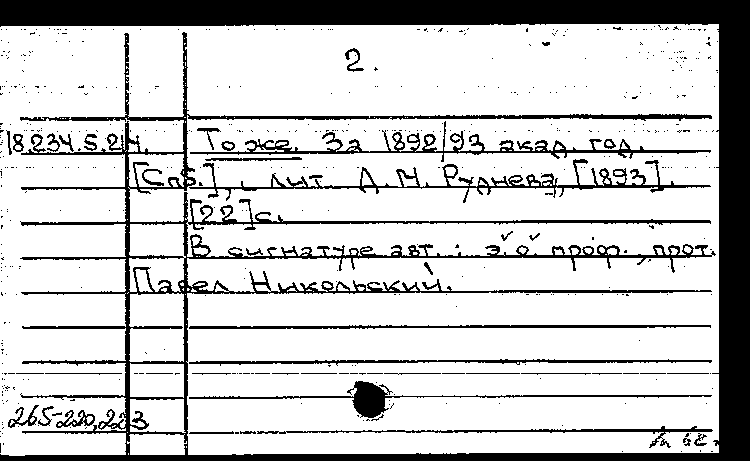 2.
18.234.5.214. То же. За 1892/93 акад. год.
[Спб.], лит. Д.М. Руднева, [1893].
[22]с.
В сигнатуре авт.: э.о. проф., прот.
Павел Никольский.
265-220,223